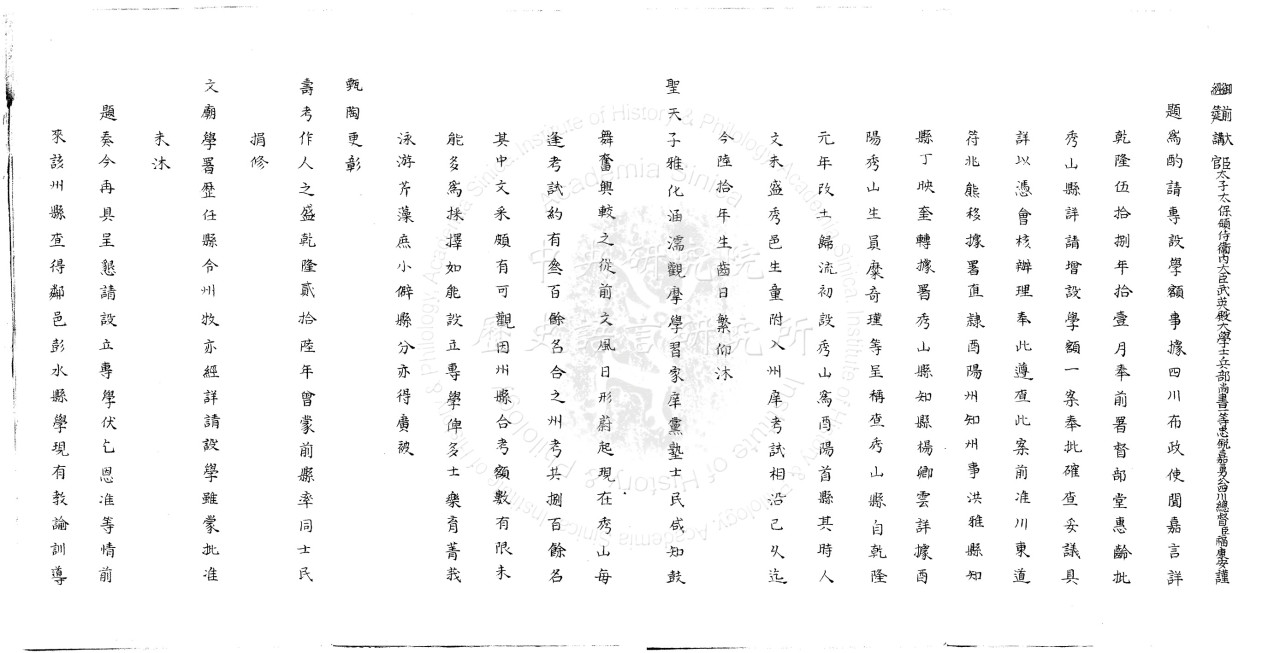 御前大臣經筵講官太子太保領侍衛內大臣武英殿大學士兵部尚書一等忠銳嘉勇公四川總督臣福康安謹
題爲酌請專設學額事據四川布政使聞嘉言詳
乾隆伍拾捌年拾壹月奉前署督部堂惠齡批
秀山縣詳請增設學額一案奉批確查妥議具
詳以憑會核辦理奉此遵查此案前准川東道
荷兆熊移據署直隸酉陽州知州事洪雅縣知
縣丁映奎轉據署秀山縣知縣楊卿雲詳據酉
陽秀山生員糜奇瑾等呈稱查秀山縣自乾隆
元年改土歸流初設秀山爲酉陽首縣其時人
文未盛秀邑生童附入州庠考試相沿已久迄
今陸拾年生齒日繁仰沐
聖天子雅化涵濡觀摩學習家庠黨塾士民咸知鼓
舞奮興較之從前文風日形蔚起現在秀山每
逢考試約有叁百餘名合之州考共捌百餘名
其中文釆頗有可觀因州縣合考額數有限未
能多爲採擇如能設立專學俾多士樂育菁莪
泳游芹藻庶小僻縣分亦得廣被
甄陶更彰
壽考作人之盛乾隆貳拾陸年曾蒙前縣率同士民
捐修
文廟學署歷任縣令州牧亦經詳請設學雖蒙批准
未沐
題奏今再具呈懇請設立專學伏乞恩准等情前
來該州縣查得鄰邑彭水縣學現有教諭訓導
中央研究院
歷史語言研究所
Academia Sinica
Institute of History & Philology